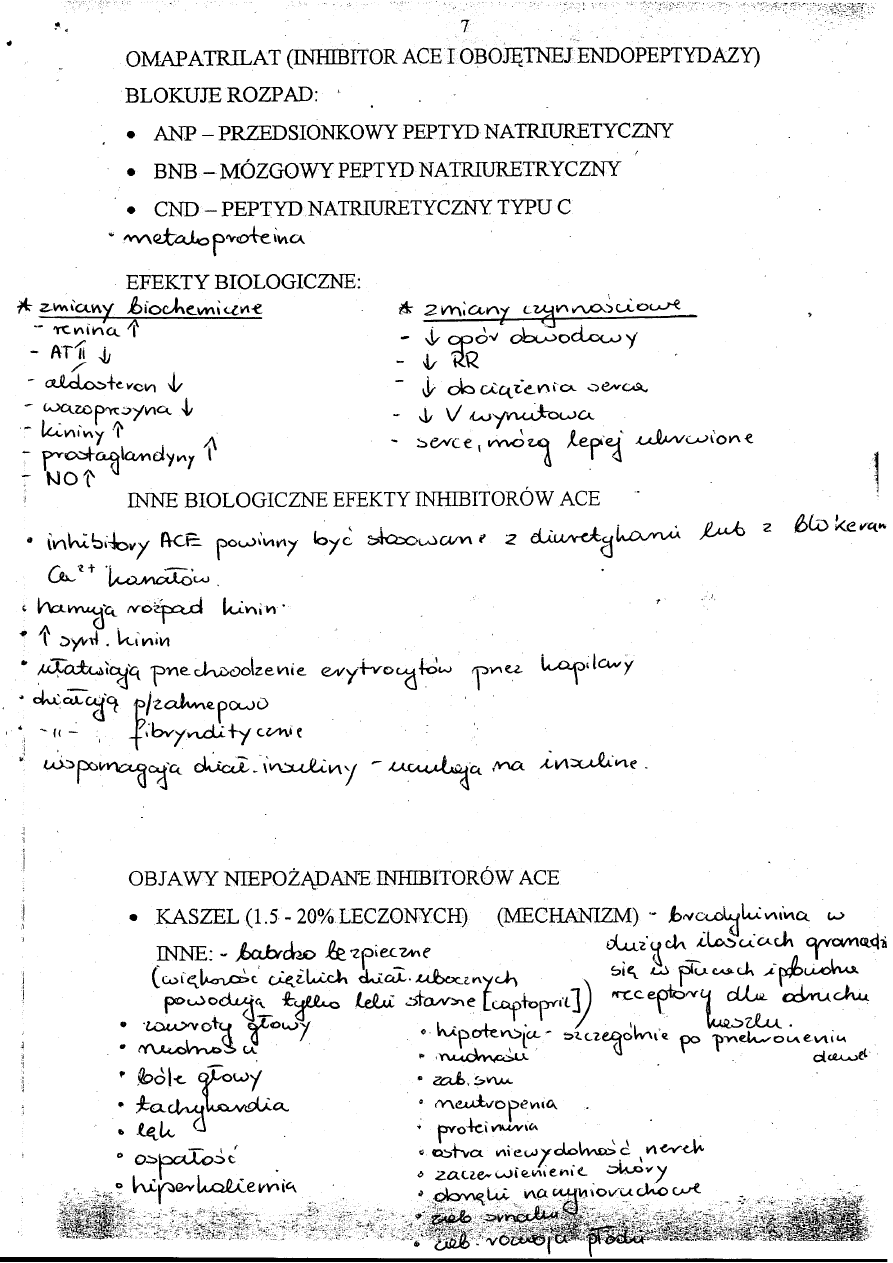 7
OMAPATRILAT (INHIBITOR ACE I OBOJĘTNEJ ENDOPEPTYDAZY)
BLOKUJE ROZPAD:
• ANP – PRZEDSIONKOWY PEPTYD NATRIURETYCZNY
• BNB – MÓZGOWY PEPTYD NATRIURETRYCZNY
• CND – PEPTYD NATRIURETYCZNY TYPU C
• metaloproteina
EFEKTY BIOLOGICZNE:
* zmiany biochemiczne
- renina ↑
- AT II ↓
- aldosteron ↓
- wazopresyna ↓
- kininy ↑
- prostaglandyny ↑
- NO ↑
* zmiany czynnościowe
- ↓ opór obwodowy
- ↓ RR
- ↓ obciążenia serca
- ↓ V wyrzutowa
- serce, mózg lepiej ukrwione
INNE BIOLOGICZNE EFEKTY INHIBITORÓW ACE
• inhibitory ACE powinny być stosowane z diuretykami lub z blokeram
Ca²⁺ kanałów.
• hamują rozpad kinin
• ↑ synt. kinin
• ułatwiają przechodzenie erytrocytów przez kapilary
• działają p/zakrzepowo
• -"- fibrynolitycznie
• wspomagają dział. insuliny - uczulają na insulinę.
OBJAWY NIEPOŻĄDANE INHIBITORÓW ACE
• KASZEL (1.5 - 20% LECZONYCH) (MECHANIZM) - bradykinina w
dużych ilościach gromadzi
się w płucach i pobudza
receptory dla odruchu
kaszlu.
INNE: - babrdzo bezpieczne
(większość ciężkich dział. ubocznych
powodują tylko leki starsze [captopril])
• zawroty głowy
• nudności
• bóle głowy
• tachykardia
• lęk
• ospałość
• hiperkaliemia
• hipotensja - szczególnie po przekroczeniu
dawek
• nudności
• zab. snu
• neutropenia
• proteinuria
• ostra niewydolność nerek
• zaczerwienienie skóry
• obrzęki naczynioruchowe
• zab smaku
• zab. rozwoju płodu